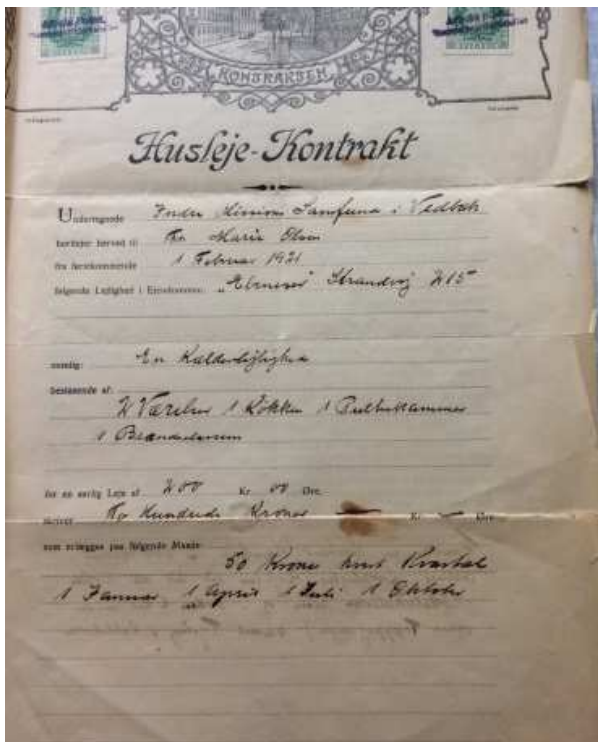 KONGRAKSEN
Husleje-Kontrakt
Undertegnede Indre Missions Samfund i Vedbæk
bortlejer herved til Fru Marie Olsen
fra førstkommende 1 Februar 1921
følgende Lejlighed i Ejendommen: „Ebenezer" Strandvej 215
nemlig: En Kælderlejlighed
bestaaende af:
2 Værelser 1 Køkken 1 Pulterkammer
1 Brænderum
for en aarlig Leje af 200 Kr. 00 Øre,
skriver To Hundrede Kroner — Kr. — Øre,
som erlægges paa følgende Maade:
50 Kroner hvert Kvartal
1 Januar 1 April 1 Juli 1 Oktober